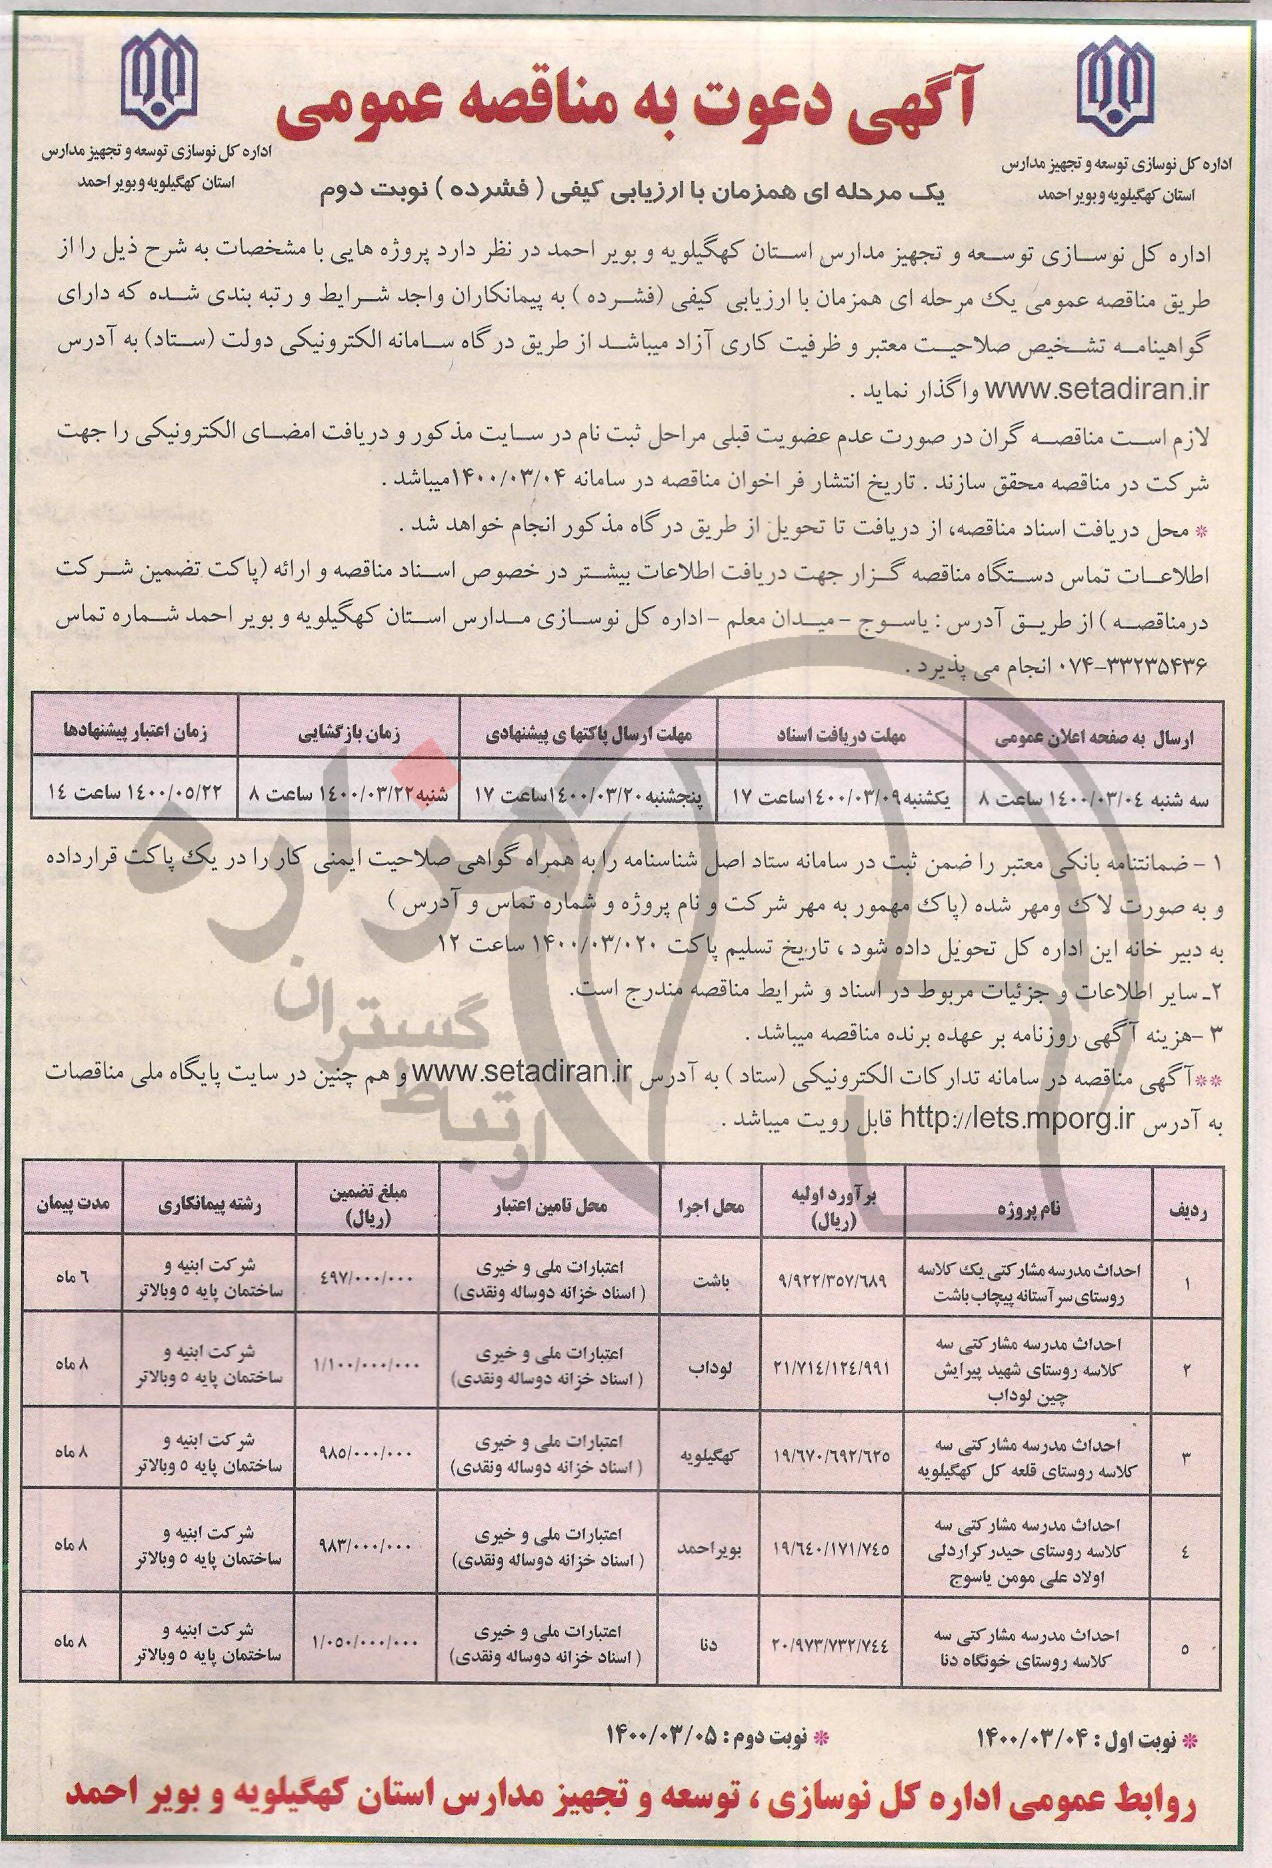 آگهی دعوت به مناقصه عمومی
یک مرحله ای همزمان با ارزیابی کیفی ( فشرده ) نوبت دوم
اداره کل نوسازی توسعه و تجهیز مدارس
استان کهگیلویه و بویر احمد
اداره کل نوسازی توسعه و تجهیز مدارس
استان کهگیلویه و بویر احمد
اداره کل نوسازی توسعه و تجهیز مدارس استان کهگیلویه و بویر احمد در نظر دارد پروژه هایی با مشخصات به شرح ذیل را از
طریق مناقصه عمومی یک مرحله ای همزمان با ارزیابی کیفی (فشرده ) به پیمانکاران واجد شرایط و رتبه بندی شده که دارای
گواهینامه تشخیص صلاحیت معتبر و ظرفیت کاری آزاد میباشد از طریق درگاه سامانه الکترونیکی دولت (ستاد) به آدرس
www.setadiran.ir واگذار نماید .
لازم است مناقصه گران در صورت عدم عضویت قبلی مراحل ثبت نام در سایت مذکور و دریافت امضای الکترونیکی را جهت
شرکت در مناقصه محقق سازند . تاریخ انتشار فر اخوان مناقصه در سامانه ۱۴۰۰/۰۳/۰۴میباشد .
* محل دریافت اسناد مناقصه، از دریافت تا تحویل از طریق درگاه مذکور انجام خواهد شد .
اطلاعات تماس دستگاه مناقصه گزار جهت دریافت اطلاعات بیشتر در خصوص اسناد مناقصه و ارائه (پاکت تضمین شرکت
درمناقصه ) از طریق آدرس : یاسوج - میدان معلم - اداره کل نوسازی مدارس استان کهگیلویه و بویر احمد شماره تماس
۰۷۴-۳۳۲۳۵۴۳۶ انجام می پذیرد .
ارسال به صفحه اعلان عمومی | مهلت دریافت اسناد | مهلت ارسال پاکتها ی پیشنهادی | زمان بازگشایی | زمان اعتبار پیشنهادها
سه شنبه ۱۴۰۰/۰۳/۰٤ ساعت ۸ | یکشنبه ۱۴۰۰/۰۳/۰۹ساعت ۱۷ | پنجشنبه ۱۴۰۰/۰۳/۲۰ساعت ۱۷ | شنبه ۱۴۰۰/۰۳/۲۲ ساعت ۸ | ۱۴۰۰/۰۵/۲۲ ساعت ۱۴
۱ - ضمانتنامه بانکی معتبر را ضمن ثبت در سامانه ستاد اصل شناسنامه را به همراه گواهی صلاحیت ایمنی کار را در یک پاکت قرارداده
و به صورت لاک ومهر شده (پاک مهمور به مهر شرکت و نام پروژه و شماره تماس و آدرس )
به دبیر خانه این اداره کل تحویل داده شود ، تاریخ تسلیم پاکت ۱۴۰۰/۰۳/۰۲۰ ساعت ۱۲
۲ـ سایر اطلاعات و جزئیات مربوط در اسناد و شرایط مناقصه مندرج است.
۳ -هزینه آگهی روزنامه بر عهده برنده مناقصه میباشد .
**آگهی مناقصه در سامانه تدارکات الکترونیکی (ستاد ) به آدرس www.setadiran.ir و هم چنین در سایت پایگاه ملی مناقصات
به آدرس http://iets.mporg.ir قابل رویت میباشد .
ردیف | نام پروژه | برآورد اولیه (ریال) | محل اجرا | محل تامین اعتبار | مبلغ تضمین (ریال) | رشته پیمانکاری | مدت پیمان
۱ | احداث مدرسه مشارکتی یک کلاسه روستای سرآستانه پیچاب باشت | ۹/۹۲۲/۳۵۷/٦۸۹ | باشت | اعتبارات ملی و خیری ( اسناد خزانه دوساله ونقدی) | ٤۹۷/۰۰۰/۰۰۰ | شرکت ابنیه و ساختمان پایه ۵ وبالاتر | ٦ ماه
۲ | احداث مدرسه مشارکتی سه کلاسه روستای شهید پیرایش چین لوداب | ۲۱/۷۱٤/۱۲٤/۹۹۱ | لوداب | اعتبارات ملی و خیری ( اسناد خزانه دوساله ونقدی) | ۱/۱۰۰/۰۰۰/۰۰۰ | شرکت ابنیه و ساختمان پایه ۵ وبالاتر | ۸ ماه
۳ | احداث مدرسه مشارکتی سه کلاسه روستای قلعه کل کهگیلویه | ۱۹/٦۷۰/٦۹۲/٦۲۵ | کهگیلویه | اعتبارات ملی و خیری ( اسناد خزانه دوساله ونقدی) | ۹۸۵/۰۰۰/۰۰۰ | شرکت ابنیه و ساختمان پایه ۵ وبالاتر | ۸ ماه
٤ | احداث مدرسه مشارکتی سه کلاسه روستای حیدرکراردلی اولاد علی مومن یاسوج | ۱۹/٦٤۰/۱۷۱/۷٤۵ | بویراحمد | اعتبارات ملی و خیری ( اسناد خزانه دوساله ونقدی ) | ۹۸۳/۰۰۰/۰۰۰ | شرکت ابنیه و ساختمان پایه ۵ وبالاتر | ۸ ماه
۵ | احداث مدرسه مشارکتی سه کلاسه روستای خونگاه دنا | ۲۰/۹۷۳/۷۳۲/۷٤٤ | دنا | اعتبارات ملی و خیری ( اسناد خزانه دوساله ونقدی) | ۱/۰۵۰/۰۰۰/۰۰۰ | شرکت ابنیه و ساختمان پایه ۵ وبالاتر | ۸ ماه
* نوبت اول : ۱۴۰۰/۰۳/۰۴
* نوبت دوم : ۱۴۰۰/۰۳/۰۵
روابط عمومی اداره کل نوسازی ، توسعه و تجهیز مدارس استان کهگیلویه و بویر احمد
هزاره
گستران
ارتباط